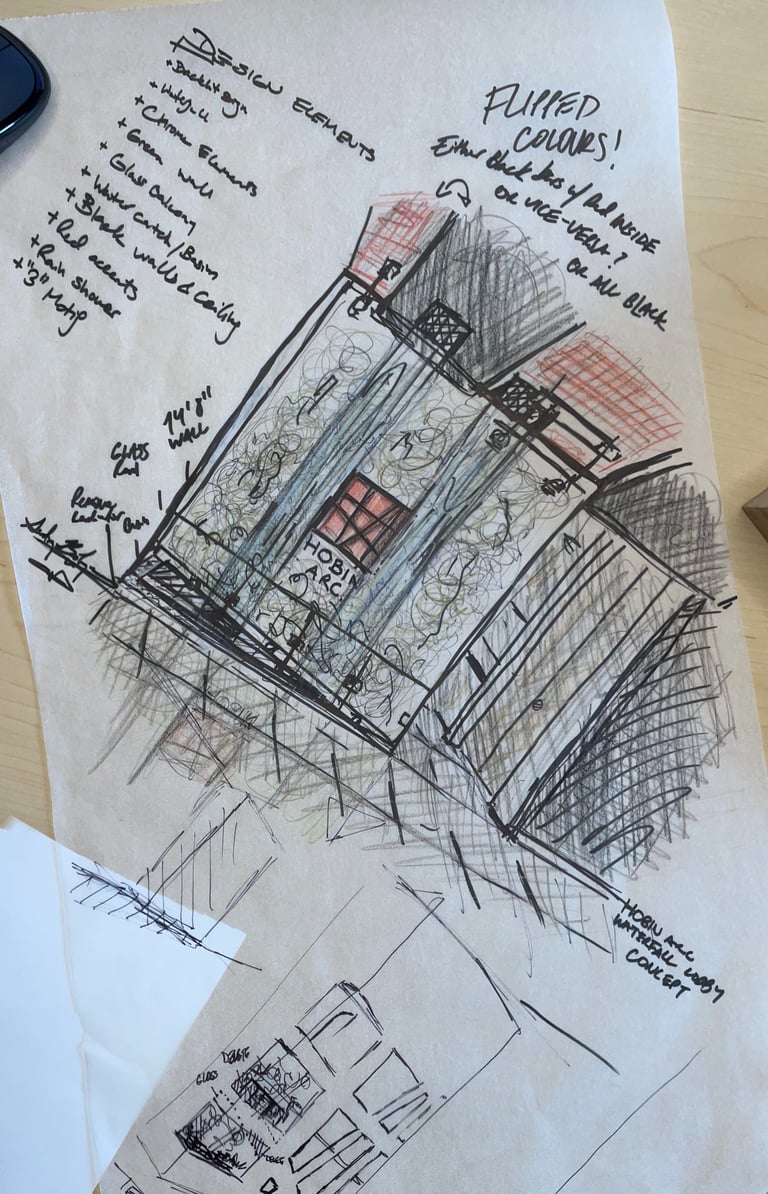 DESIGN ELEMENTS
+ Backlit Sign
+ Waterfall
+ Chrome Elements
+ Green wall
+ Glass Balcony
+ Water catch/Basin
+ Black walls & Ceiling
+ Red accents
+ Rain Shower
+ "3" Motif
FLIPPED
COLOURS!
Either Black Box w/ Red INSIDE
OR VICE-VERSA?
OR ALL BLACK
14'8"
WALL
GLASS
HOBIN
ARC.
HOBIN ARC
WATERFALL LOBBY
CONCEPT
DELETE
GLASS